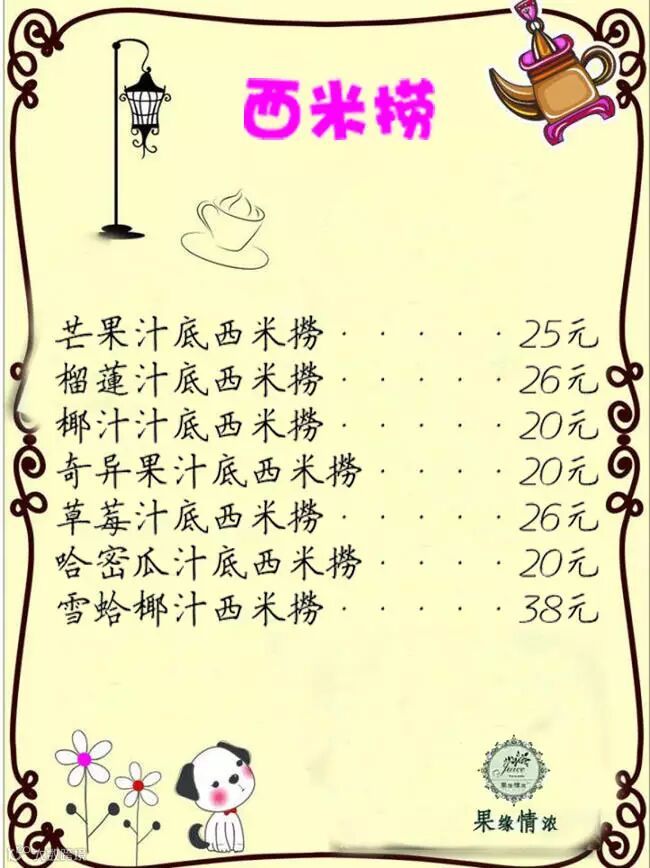 西米捞
芒果汁底西米撈 · · · · · 25元
榴蓮汁底西米撈 · · · · · 26元
椰汁汁底西米撈 · · · · · 20元
奇异果汁底西米撈 · · · · 20元
草莓汁底西米撈 · · · · · 26元
哈密瓜汁底西米撈 · · · · 20元
雪蛤椰汁西米撈 · · · · · 38元
Juice
果缘情浓
果缘情浓